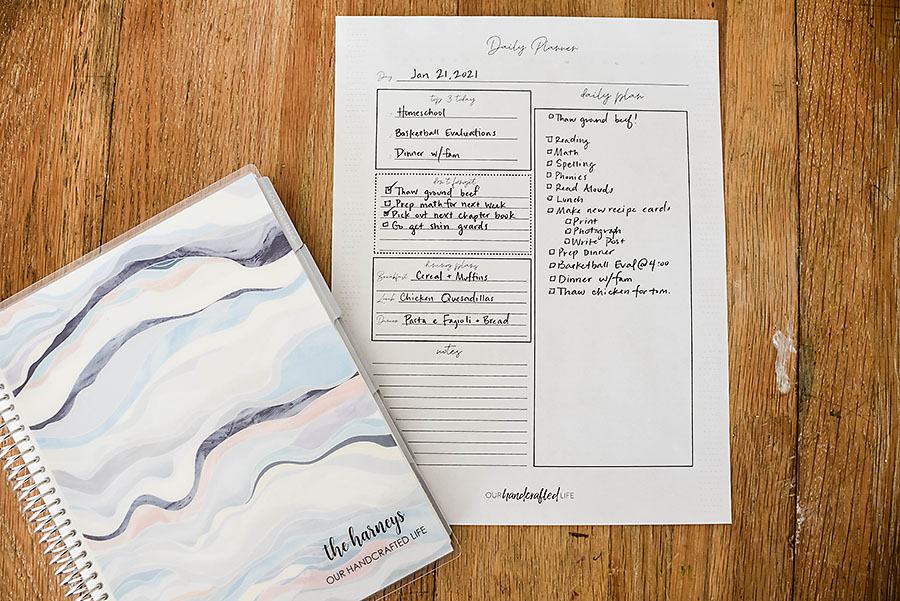 Daily Planner
Day Jan 21, 2021
top 3 today
Homeschool
Basketball Evaluations
Dinner w/fam
don't forget
Thaw ground beef
Prep math for next week
Pick out next chapter book
Go get shin guards
dining plans
Breakfast Cereal + Muffins
Lunch Chicken Quesadillas
Dinner Pasta e Fagioli + Bread
notes
daily plan
Thaw ground beef!
Reading
Math
Spelling
Phonics
Read Alouds
Lunch
Make new recipe cards
Print
Photograph
Write Post
Prep Dinner
Basketball Eval @ 4:00
Dinner w/fam
Thaw chicken for tom.
OUR handcrafted LIFE
the harneys
OUR HANDCRAFTED LIFE